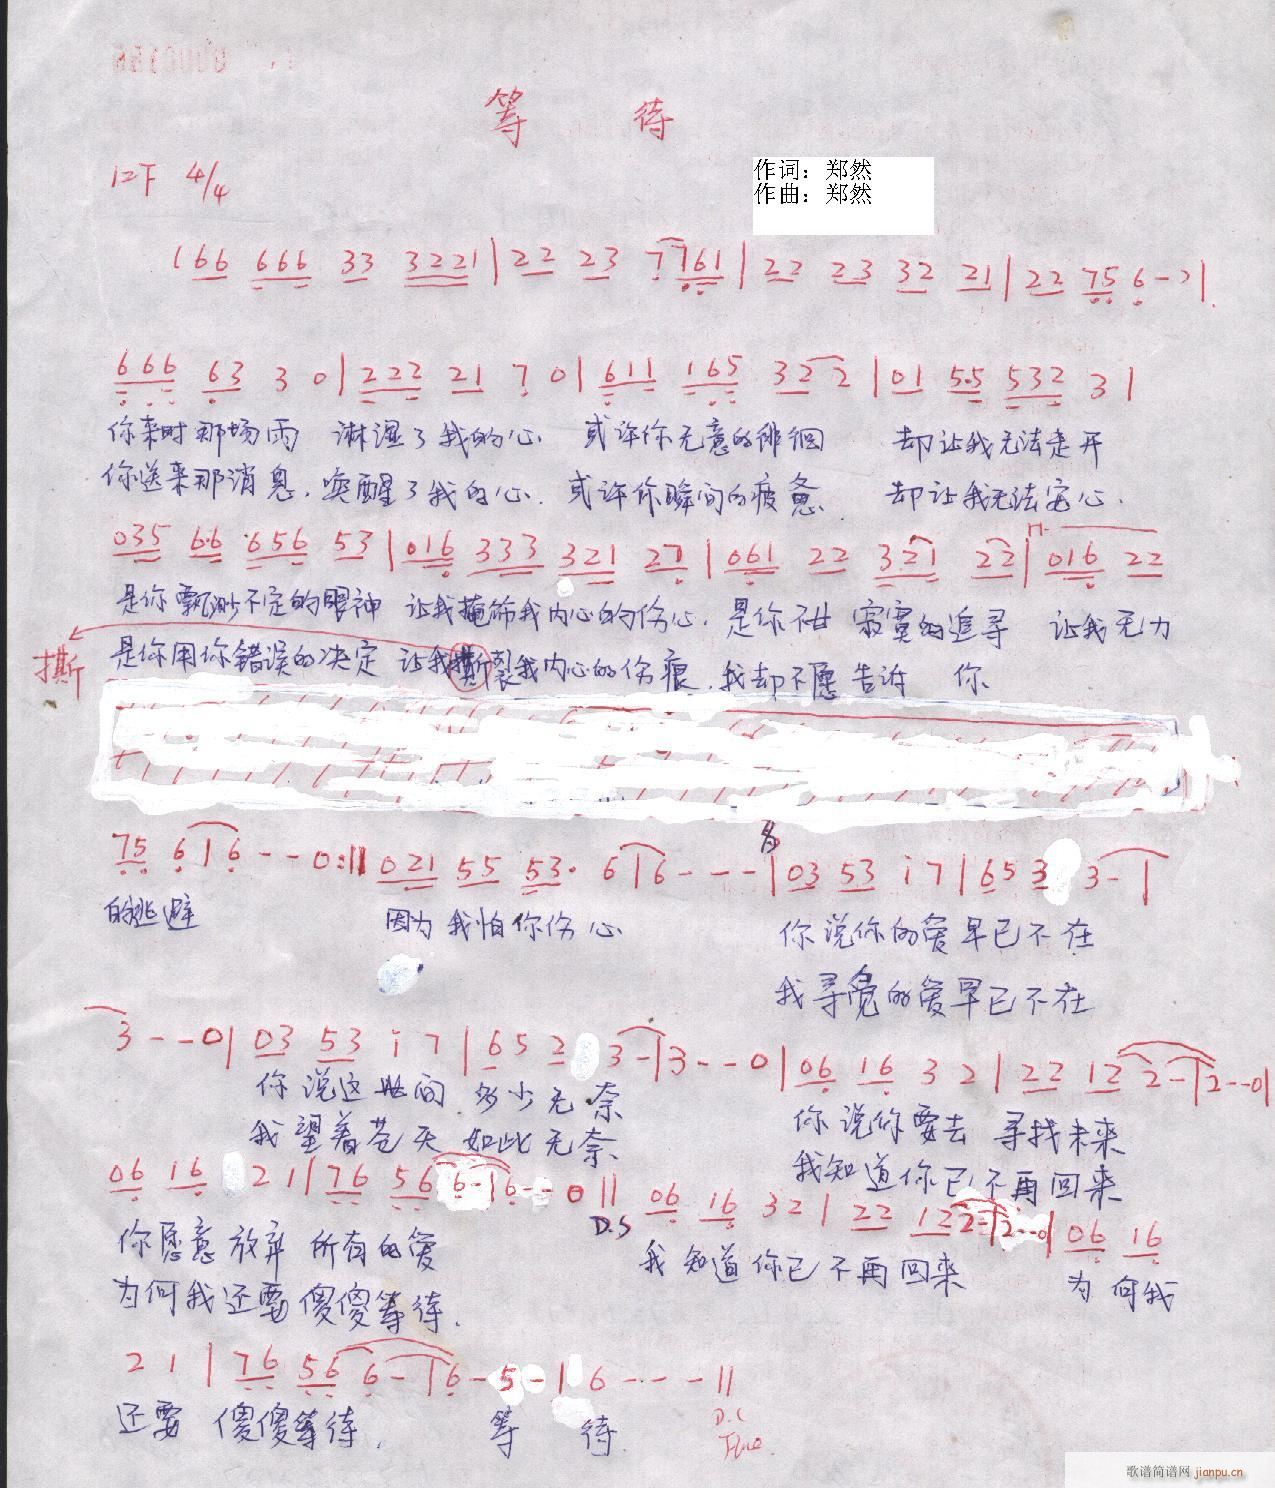 等 待
1=F 4/4
作词：郑然
作曲：郑然
166 666 33 3221 | 22 23 7 761 | 22 23 32 21 | 22 75 6 - - |
666 63 3 0 | 222 21 7 0 | 611 165 32 2 | 01 5.5 532 3 |
你来时那场雨 淋湿了我的心 或许你无意的徘徊 却让我无法走开
你送来那消息. 唤醒了我的心. 或许你瞬间的疲惫. 却让我无法安心.
035 6.6 656 53 | 016 333 321 27 | 061 22 321 22 | 016 22
是你飘渺不定的眼神 让我掩饰我内心的伤心. 是你不甘 寂寞的追寻 让我无力
撕 是你用你错误的决定 让我撕裂我内心的伤痕. 我却不愿告诉 你
75 6 | 6 - - 0 :|| 021 55 53. 6 | 6 - - - | 03 53 i 7 | 653 3 - |
的逃避 因为我怕你伤心 你说你的爱早已不在
我寻觅的爱早已不在
3 - - 0 | 03 53 i 7 | 652 3 - | 3 - - 0 | 06 16 3 2 | 22 12 2 - | 2 - - 0 |
你说这世间 多少无奈 你说你要去 寻找未来
我望着苍天 如此无奈 我知道你已不再回来
06 16 2 1 | 76 56 6 - | 6 - - 0 || D.S 06 16 32 | 22 12 2 - | 2 - - 0 | 06 16
你愿意放弃 所有的爱 我知道你已不再回来 为何我
为何我还要傻傻等待.
2 1 | 76 56 6 - | 6 - 5 - | 6 - - - ||
还要 傻傻等待. 等 待
D.C
歌谱简谱网 jianpu.cn